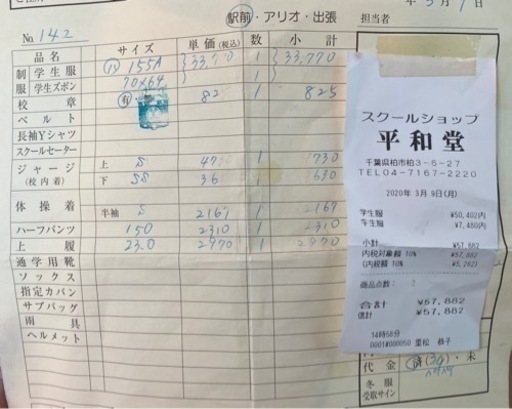 年 3月 1日
駅前・アリオ・出張 担当者
No. 142
品名 サイズ 単価(税込) 数 小計
制 学生服 155A 33,770 1 33,770
服 学生ズボン 70×64 1
校章 有 82 1 825
ベルト
長袖Yシャツ
スクールセーター
ジャージ 上 S 47 1 730
(校内着) 下 SS 36 1 630
体操着 半袖 S 2167 1 2167
ハーフパンツ 150 2310 1 2310
上履 23.0 2970 1 2970
通学用靴
ソックス
指定カバン
サブバッグ
雨具
ヘルメット
スクールショップ
平和堂
千葉県柏市柏3-6-27
TEL04-7167-2220
2020年 3月 9日(月)
学生服 ¥50,402内
学生服 ¥7,480内
小計 ¥57,882
内税対象額 10% ¥57,882
(内税額 10% ¥5,262)
商品点数:
合計 ¥57,882
信計 ¥57,882
14時58分
0001#000050 重松 恭子
代金 済・未
冬服
受取サイン